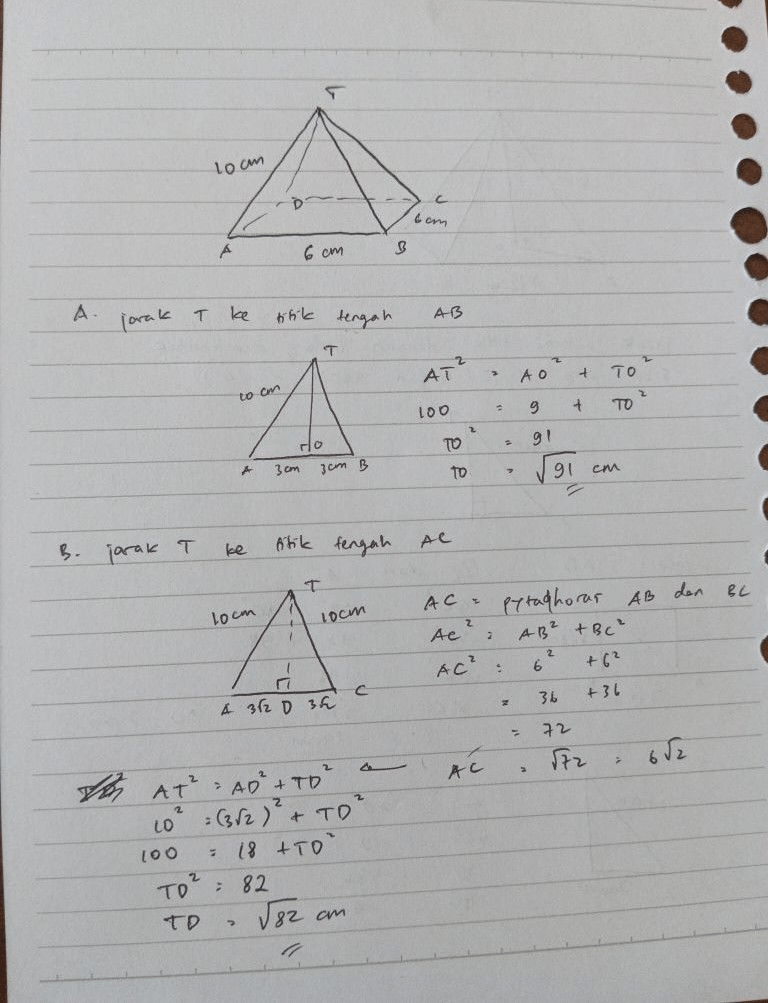 T
10 cm
D
C
6 cm
A
6 cm
B
A. jarak T ke titik tengah AB
T
10 cm
O
A 3 cm 3 cm B
AT² = AO² + TO²
100 = 9 + TO²
TO² = 91
TO = √91 cm
B. jarak T ke titik tengah AC
T
10 cm 10 cm
A 3√2 D 3√2 C
AC = pytaghoras AB dan BC
AC² = AB² + BC²
AC² = 6² + 6²
= 36 + 36
= 72
AC = √72 = 6√2
AT² = AD² + TD²
10² = (3√2)² + TD²
100 = 18 + TD²
TD² = 82
TD = √82 cm